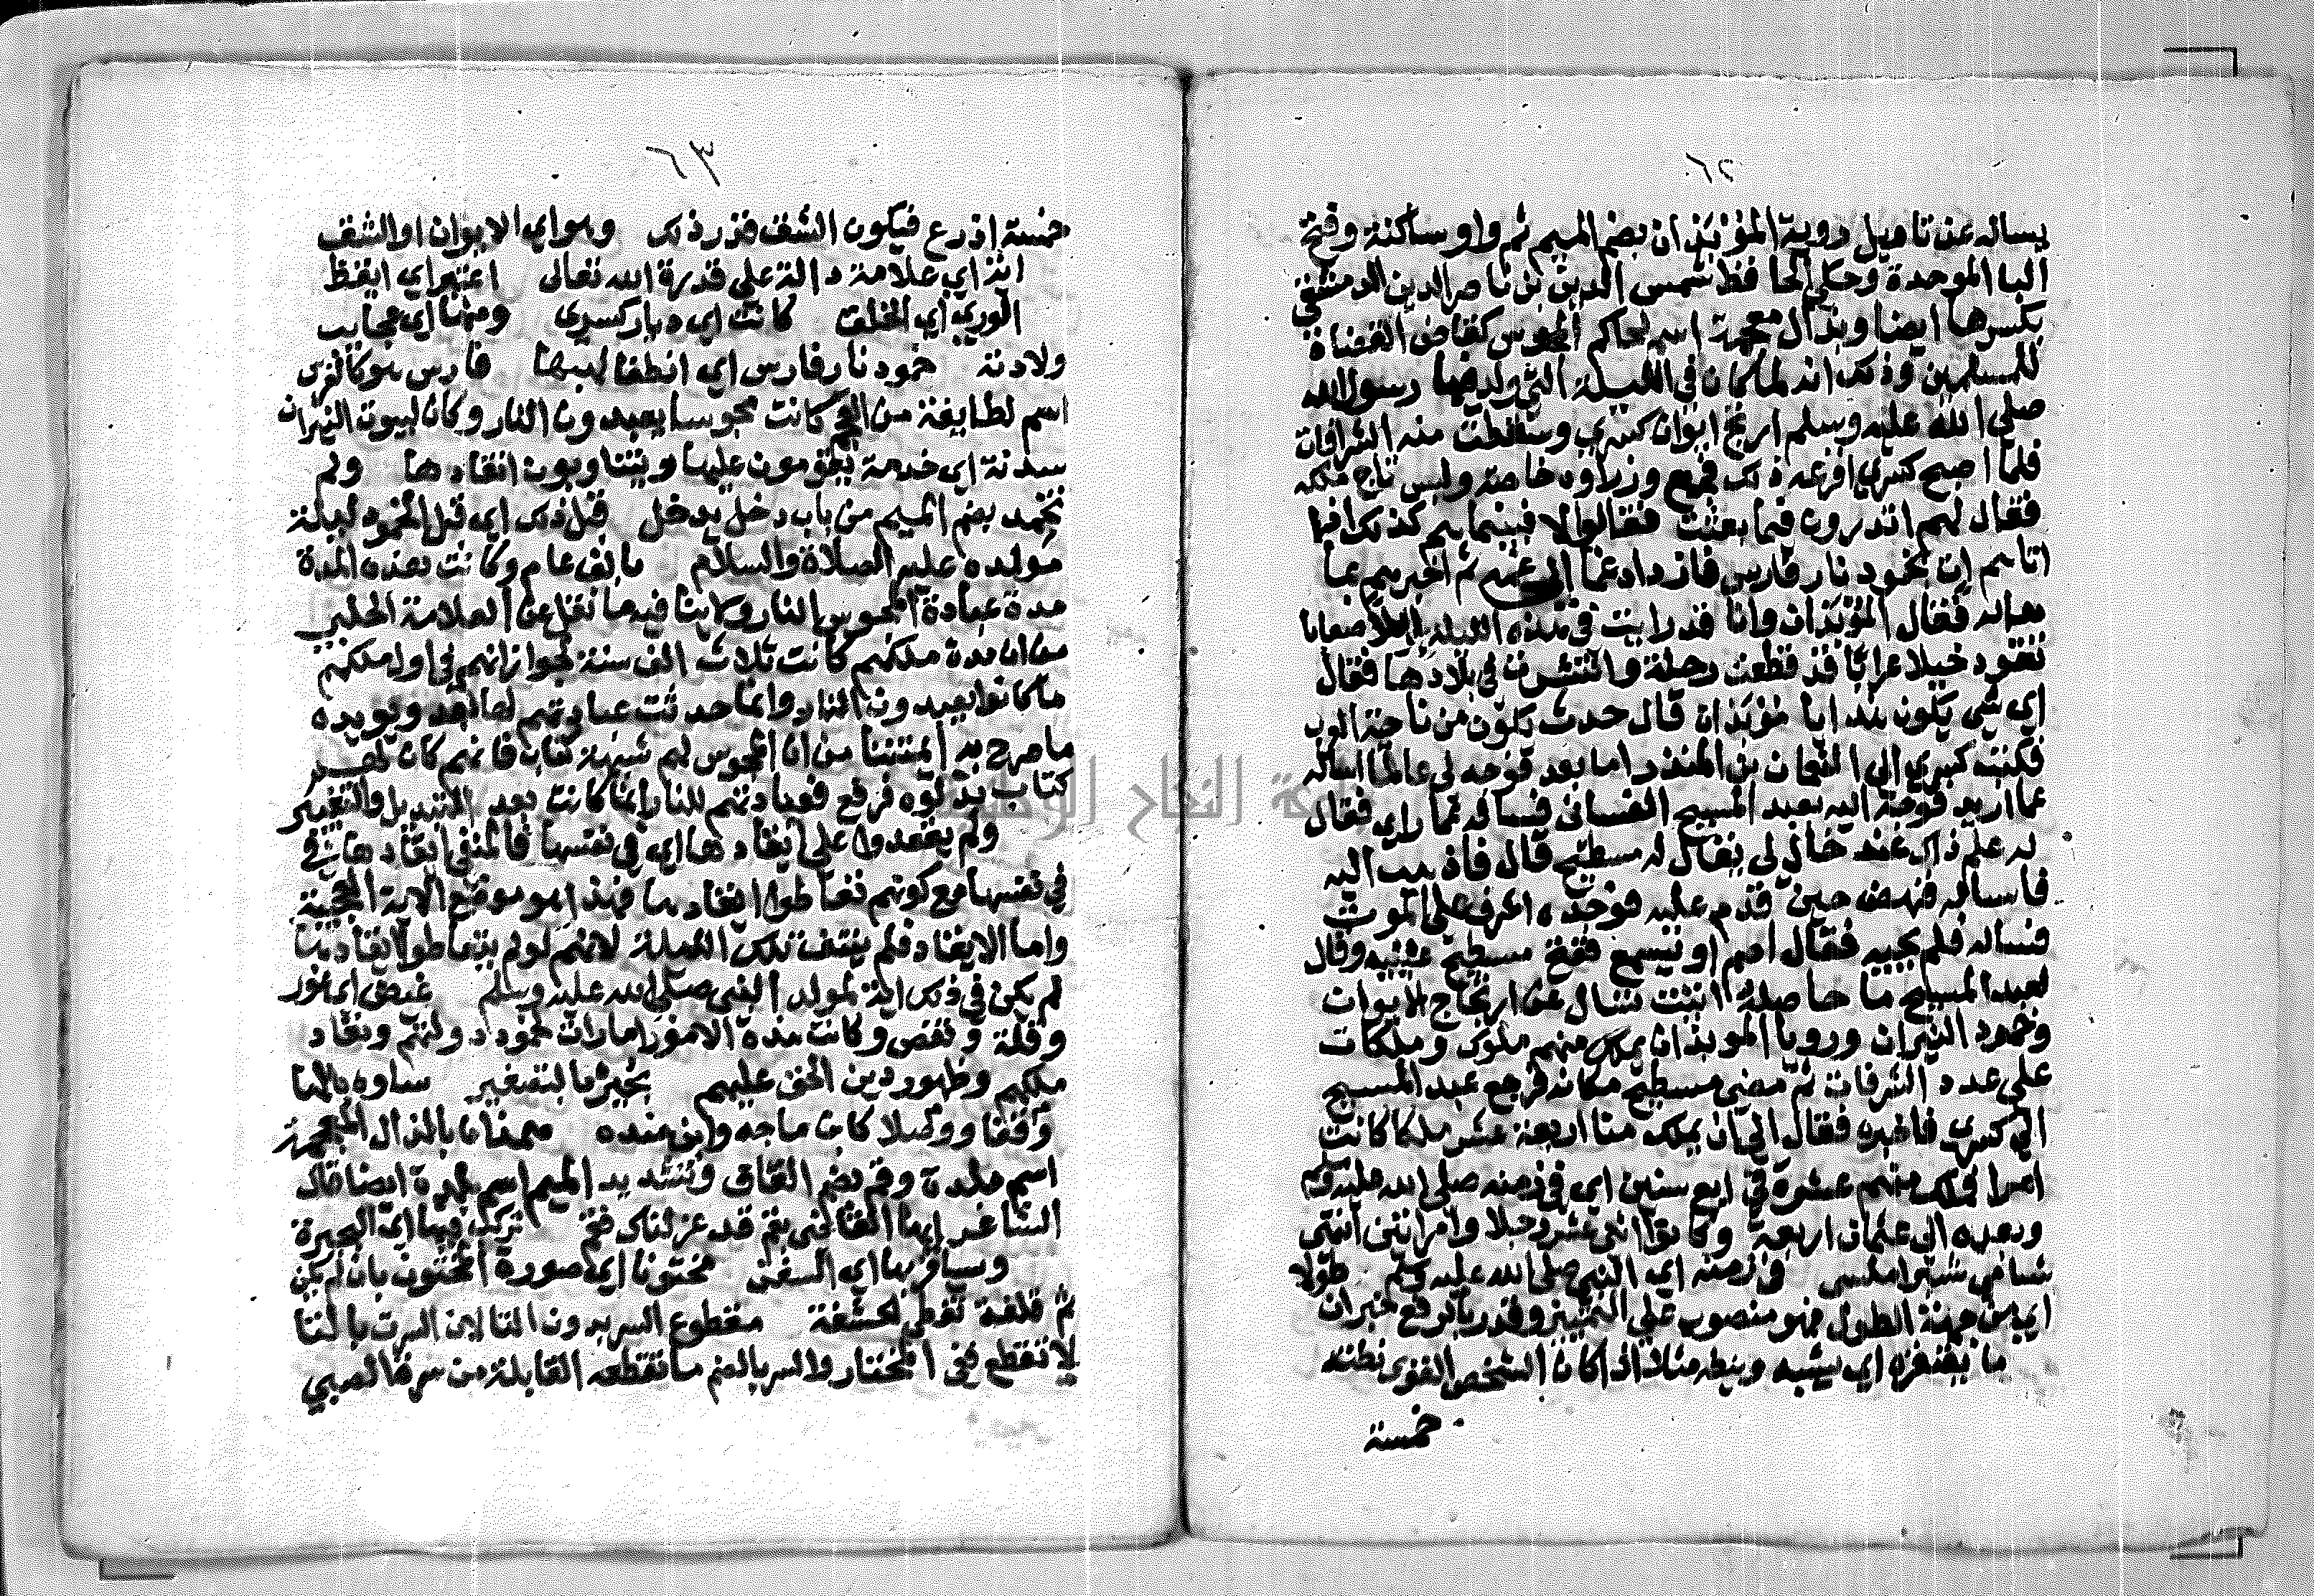 ٦٢
يساله عن تاويل روية المؤبذان بضم الميم ثم واو ساكنة وفتح
البا الموحدة وحكى الحافظ شمس الدين بن ناصر الدين الدمشقي
بكسرها ايضا وبذال معجمة اسم لحاكم المجوس كقاضي القضاة
للمسلمين وذلك انه لما كان في الليلة التي ولد فيها رسول الله
صلى الله عليه وسلم ارتج ايوان كسرى وسقطت منه الشرافات
فلما اصبح كسرى افزعه ذلك فجمع وزراوه خاصة ولبس تاج ملكه
فقال لهم اتدرون فيما بعثت فقالوا لا فبينما هم كذلك اذا
اتاهم ان بخمود نار فارس فازداد غما الى غمه ثم اخبرهم بما
هاله فقال المؤبذان وانا قد رايت في هذه الليلة ابلا صعابا
تقود خيلا عرابا قد قطعت دجلة وانتشرت في بلادها فقال
اي شي يكون هذا يا مؤبذان قال حدث يكون من ناحية العرب
فكتب كسرى الى النعمان بن المنذر اما بعد فوجه لي عالما اساله
عما اريد فوجه اليه بعبد المسيح الغساني فساله عما راى فقال
له علم ذلك عند خال لي يقال له سطيح قال فاذهب اليه
فاساله فنهض حين قدم عليه فوجده اشرف على الموت
فساله فلم يجبه فقال اصم او تسمع ففتح سطيح عينيه وقال
لعبد المسيح ما حاصله اتيت تسال عن ارتجاج الايوان
وخمود النيران ورويا الموبذان يملك منهم ملوك وملكات
على عدد الشرفات ثم مضى سطيح مكانه فرجع عبد المسيح
الى كسرى فاخبره فقال الى ان يملك منا اربعة عشر ملكا كانت
امرا فملك منهم عشرة في اربع سنين اي في زمنه صلى الله عليه وسلم
وبعده الى عثمان اربعة وكانوا اثنى عشر رجلا وامراتين انتهى
شامي شبراملسي في زمنه اي النبي صلى الله عليه وسلم طولا
اي من جهة الطول فهو منصوب على التمييز وقدر بالرفع خبر ان
ما يقنفزه اي يشبه وينطه مثلا اذا كان الشخص القوي نطته
خمسة
٦٣
خمسة اذرع فيكون الشق قدر ذلك وهو اي الايوان او الشق
اية اي علامة دالة على قدرة الله تعالى اعتبر اي ايقظ
الورى اي الخلق كانت اي ديار كسرى ومنها اي عجايب
ولادته خمود نار فارس اي انطفا لهبها فارس هو كالفرس
اسم لطايفة من العجم كانت مجوسا يعبدون النار وكان لبيوت النيران
سدنة اي خدمة يقومون عليها ويتناوبون ايقادها ولم
تخمد بضم الميم من باب دخل يدخل قبل ذلك اي قبل الخمود ليلة
مولده عليه الصلاة والسلام بالف عام وكانت هذه المدة
مدة عبادة المجوس النار ولا ينافيه ما نقل عن العلامة الحلبي
من ان مدة ملكهم كانت ثلاث الاف سنة لجواز انهم في اول ملكهم
ما كانوا يعبدون النار وانما حدثت عبادتهم لها بعد ويويده
ما صرح به ايمتنا من ان المجوس لهم شبهة كتاب فانهم كان لهم
كتاب بدلوه فرفع فعبادتهم للنار انما كانت بعد التبديل والتغيير
ولم يقدروا على ايقادها اي في نفسها فالمنفي ايقادها في
في نفسها مع كونهم تعاطوا ايقادها وهذا هو موقع الاية العجيبة
واما الايقاد فلم ينتف تلك الليلة لانهم لو لم يتعاطوا ايقادها
لم يكن في ذلك اية لمولد النبي صلى الله عليه وسلم غيض اي غور
وقلة ونقص وكانت هذه الامور امارات لخمود دولتهم ونفاد
ملكهم وظهور دين الحق عليهم بحيرة بالتصغير ساوه بالها
وقفا ووصلا كابن ماجه وابن منده همذان بالذال المعجمة
اسم بلدة وقم بضم القاف وتشديد الميم اسم بلدة ايضا قال
الشاعر ايها القاضي بقم قد عزلناك فقم تركب فيها اي البحيرة
وسافر بها اي السفن مختونا اي صورة المختون بان لم يكن
ثم قلفة تغطي الحشفة مقطوع السر بدون التا لان السرة بالتا
لا تقطع في المختار والسر بالضم ما تقطعه القابلة من سرة الصبي